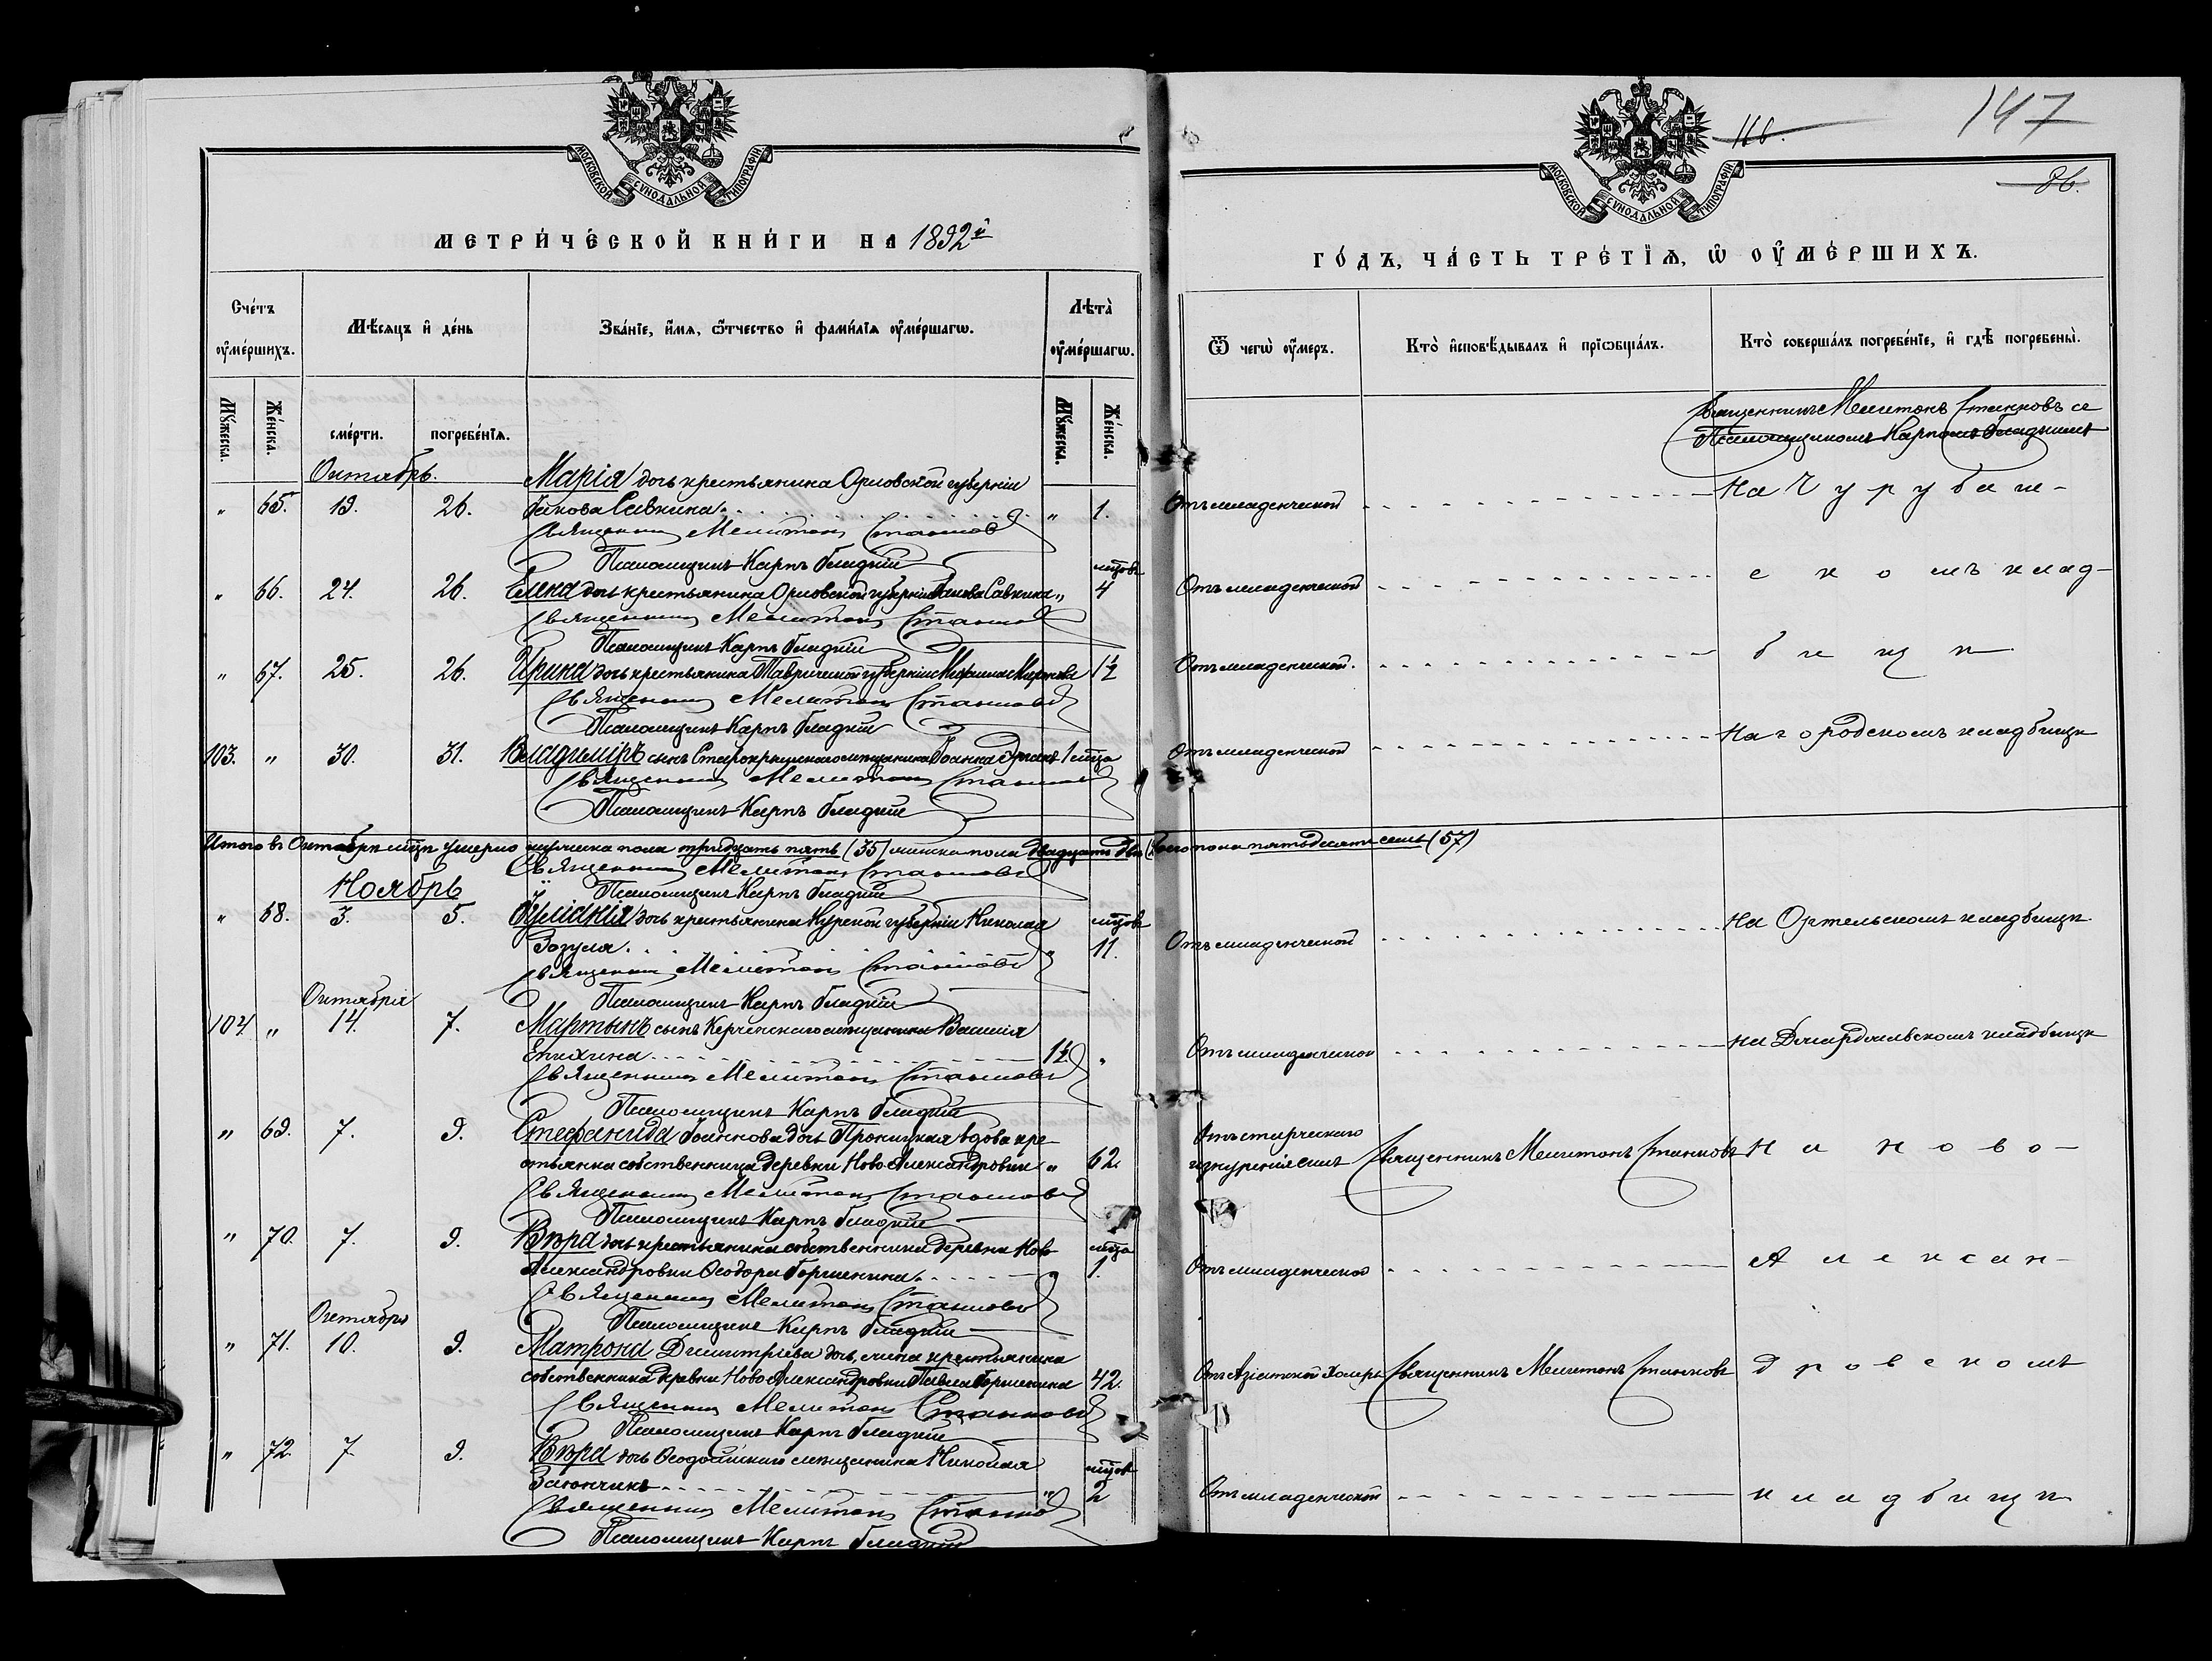 МОСКОВСКОЙ СУНОДАЛЬНОЙ ТИПОГРАФІИ
МЕТРИ́ЧЕСКОЙ КНИ́ГИ НА 1892й
Сче́тъ оу҆ме́ршихъ.
Мѣ́сяцъ и҆ де́нь
Зва́нїе, и҆́мѧ, ѻ҆́тчество и҆ фами́лїѧ оу҆ме́ршагѡ.
Лѣ́та оу҆ме́ршагѡ.
Мꙋ́жеска.
Же́нска.
сме́рти.
погребе́нїѧ.
Мꙋ́жеска.
Же́нска.
Октябрь.
Марія дочь крестьянина Орловской губерніи
" 65. 19. 26. Іакова Савкина. " 1.
Священникъ Мелитонъ Станковъ
Псаломщикъ Карпъ Гладкій
мцовъ
" 66. 24. 26. Елена дочь крестьянина Орловской губерніи Іакова Савкина " 4
Священникъ Мелитонъ Станковъ
Псаломщикъ Карпъ Гладкій
" 67. 25. 26. Ирина дочь крестьянина Таврической губерніи 1½
Священникъ Мелитонъ Станковъ
Псаломщикъ Карпъ Гладкій
103. " 30. 31. Владиміръ сынъ Старокрымскаго мѣщанина Іоанна 1 мца
Священникъ Мелитонъ Станковъ
Псаломщикъ Карпъ Гладкій
Итого въ Октябрѣ мцѣ умерло мужеска пола тридцать пять (35) женска пола двадцать два
Священникъ Мелитонъ Станковъ
Ноябрь
Псаломщикъ Карпъ Гладкій
" 68. 3. 5. Іуліанія дочь крестьянина Курской губерніи Николая мцовъ
Зозуля. " 11.
Священникъ Мелитонъ Станковъ
Октября
Псаломщикъ Карпъ Гладкій
104 " 14. 7. Мартынъ сынъ Керченскаго мѣщанина Василія
Епихина 1½ "
Священникъ Мелитонъ Станковъ
Псаломщикъ Карпъ Гладкій
" 69. 7. 9. Стефанида Іоаннова дочь вдова кре-
стьянка собственница деревни Ново-Александровки " 62.
Священникъ Мелитонъ Станковъ
Псаломщикъ Карпъ Гладкій
" 70. 7. 9. Вѣра дочь крестьянина собственника деревни Ново- мца
Александровки Ѳеодора Горшенина. " 1.
Священникъ Мелитонъ Станковъ
Октября
Псаломщикъ Карпъ Гладкій
" 71. 10. 9. Матрона Димитріева дочь, жена крестьянина
собственника деревни Ново-Александровки Павла Горшенина 42.
Священникъ Мелитонъ Станковъ
Псаломщикъ Карпъ Гладкій
" 72. 7 9. Вѣра дочь Ѳеодосійскаго мѣщанина Николая мцовъ
Заіончикъ " 2
Священникъ Мелитонъ Станковъ
Псаломщикъ Карпъ Гладкій
116.
147
86.
МОСКОВСКОЙ СУНОДАЛЬНОЙ ТИПОГРАФІИ
ГО́ДЪ, ЧА́СТЬ ТРЕ́ТЇѦ, Ѡ҆ ОУ҆МЕ́РШИХЪ.
Ѿ чегѡ̀ оу҆́меръ.
Кто̀ и҆сповѣ́дывалъ и҆ прїѡбща́лъ.
Кто̀ соверша́лъ погребе́нїе, и҆ гдѣ̀ погребены̀.
Священникъ Мелитонъ Станковъ съ
Псаломщикомъ Карпомъ Гладкимъ
Отъ младенческой На Чурубаш-
Отъ младенческой скомъ клад-
Отъ младенческой. бищѣ
Отъ младенческой На городскомъ кладбищѣ
всего пола пятьдесятъ семь (57)
Отъ младенческой На Ортельскомъ кладбищѣ.
Отъ младенческой на Джарджавскомъ кладбищѣ
Отъ старческаго
изнуренія силъ Священникъ Мелитонъ Станковъ На Ново-
Отъ младенческой Алексан-
Отъ Азіатской холеры Священникъ Мелитонъ Станковъ дровскомъ
Отъ младенческой кладбищѣ